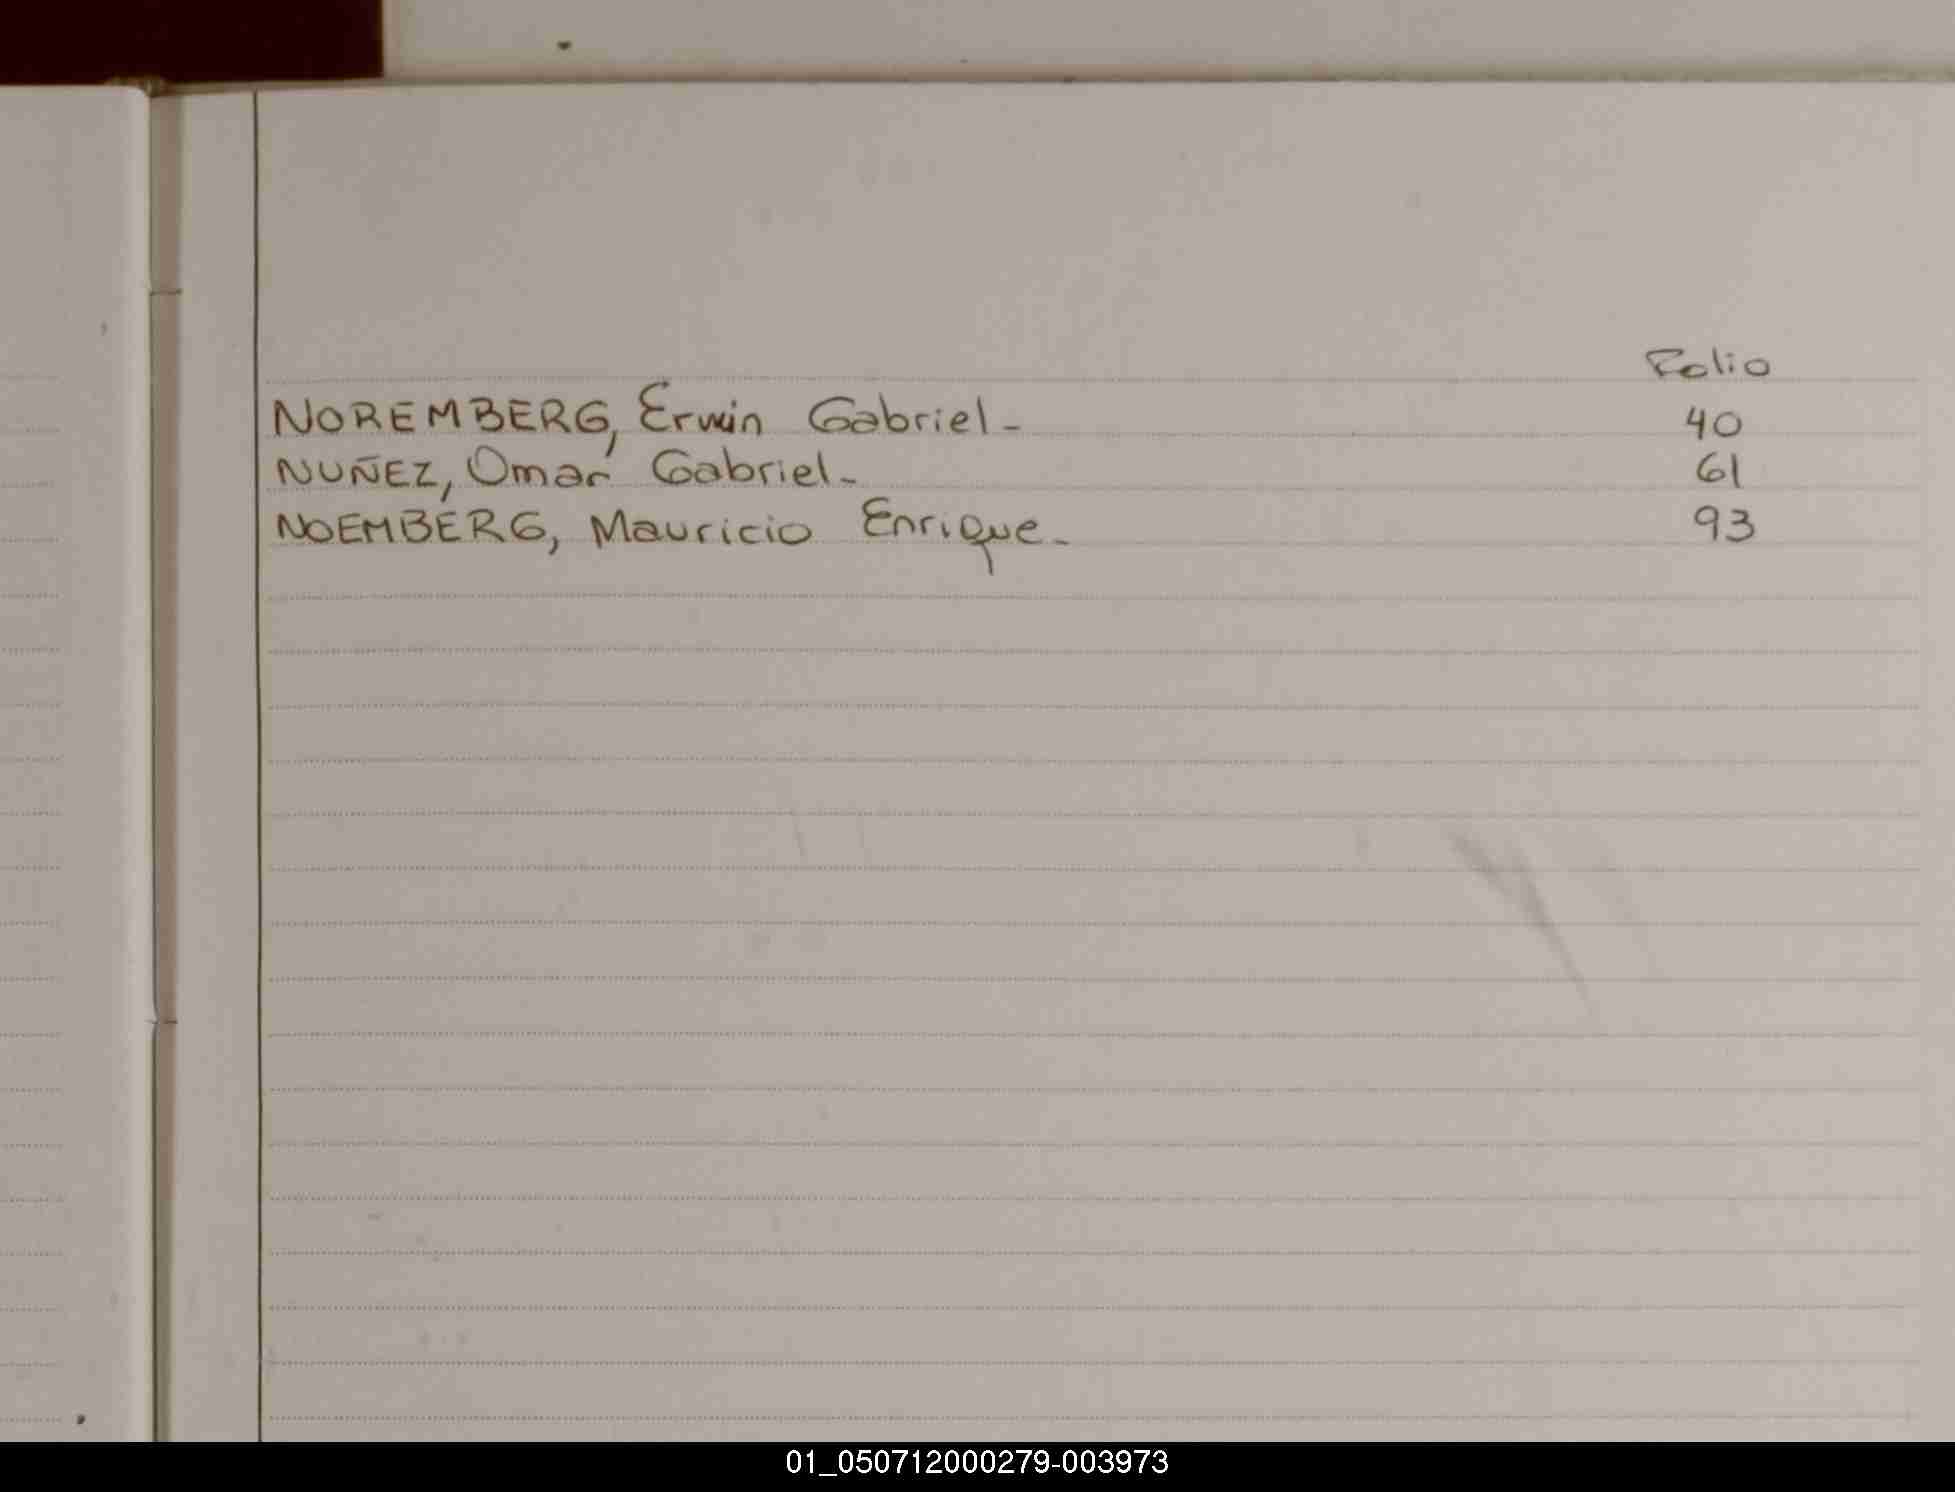 Folio
NOREMBERG, Erwin Gabriel- 40
NUÑEZ, Omar Gabriel- 61
NOEMBERG, Mauricio Enrique- 93
01_050712000279-003973